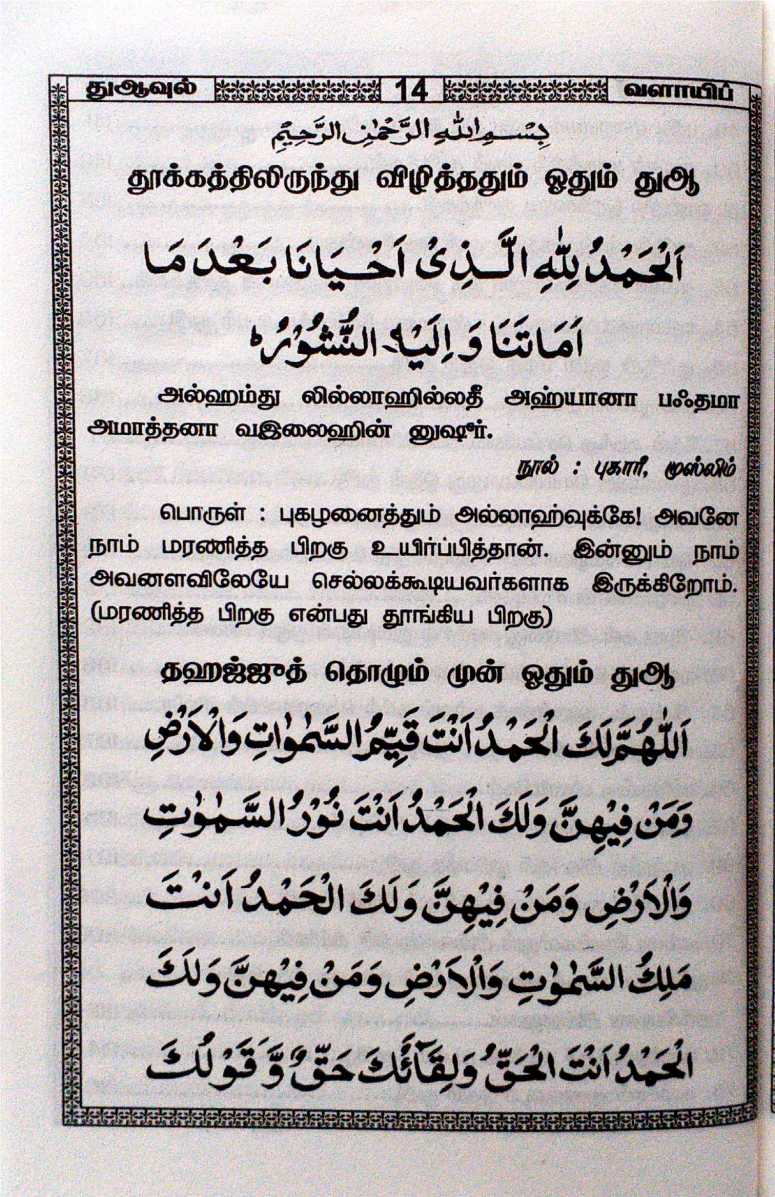 துஆவுல் 14 வளாயிப்
بِسْمِ اللهِ الرَّحْمٰنِ الرَّحِيْمِ
தூக்கத்திலிருந்து விழித்ததும் ஓதும் துஆ
اَلْحَمْدُ لِلّٰهِ الَّذِيْ اَحْيَانَا بَعْدَ مَا
اَمَاتَنَا وَ اِلَيْهِ النُّشُوْرُ
அல்ஹம்து லில்லாஹில்லதீ அஹ்யானா பஃதமா
அமாத்தனா வஇலைஹின் னுஷூர்.
நூல் : புகாரீ, முஸ்லிம்
பொருள் : புகழனைத்தும் அல்லாஹ்வுக்கே! அவனே
நாம் மரணித்த பிறகு உயிர்ப்பித்தான். இன்னும் நாம்
அவனளவிலேயே செல்லக்கூடியவர்களாக இருக்கிறோம்.
(மரணித்த பிறகு என்பது தூங்கிய பிறகு)
தஹஜ்ஜுத் தொழும் முன் ஓதும் துஆ
اَللّٰهُمَّ لَكَ الْحَمْدُ اَنْتَ قَيِّمُ السَّمٰوٰتِ وَالْاَرْضِ
وَمَنْ فِيْهِنَّ وَلَكَ الْحَمْدُ اَنْتَ نُوْرُ السَّمٰوٰتِ
وَالْاَرْضِ وَمَنْ فِيْهِنَّ وَلَكَ الْحَمْدُ اَنْتَ
مَلِكُ السَّمٰوٰتِ وَالْاَرْضِ وَمَنْ فِيْهِنَّ وَلَكَ
الْحَمْدُ اَنْتَ الْحَقُّ وَلِقَآئُكَ حَقٌّ وَّقَوْلُكَ